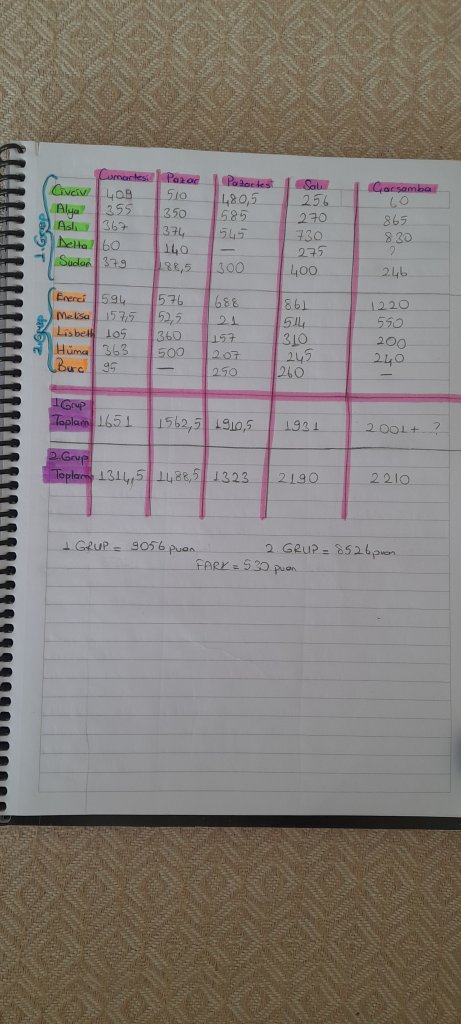 Cumartesi Pazar Pazartesi Salı Çarşamba
1.Grup
Civciv 409 510 480,5 256 60
Alya 355 350 585 270 865
Aslı 367 374 545 730 830
Delta 60 140 — 275 ?
Sudan 379 188,5 300 400 246
2.Grup
Enerci 594 576 688 861 1220
Melisa 157,5 52,5 21 514 550
Lisbeth 105 360 157 310 200
Hüma 363 500 207 245 240
Burc 95 — 250 260 —
1.Grup
Toplam 1651 1562,5 1910,5 1931 2001 + ?
2.Grup
Toplam 1314,5 1488,5 1323 2190 2210
1 GRUP = 9056 puan 2 GRUP = 8526 puan
FARK = 530 puan